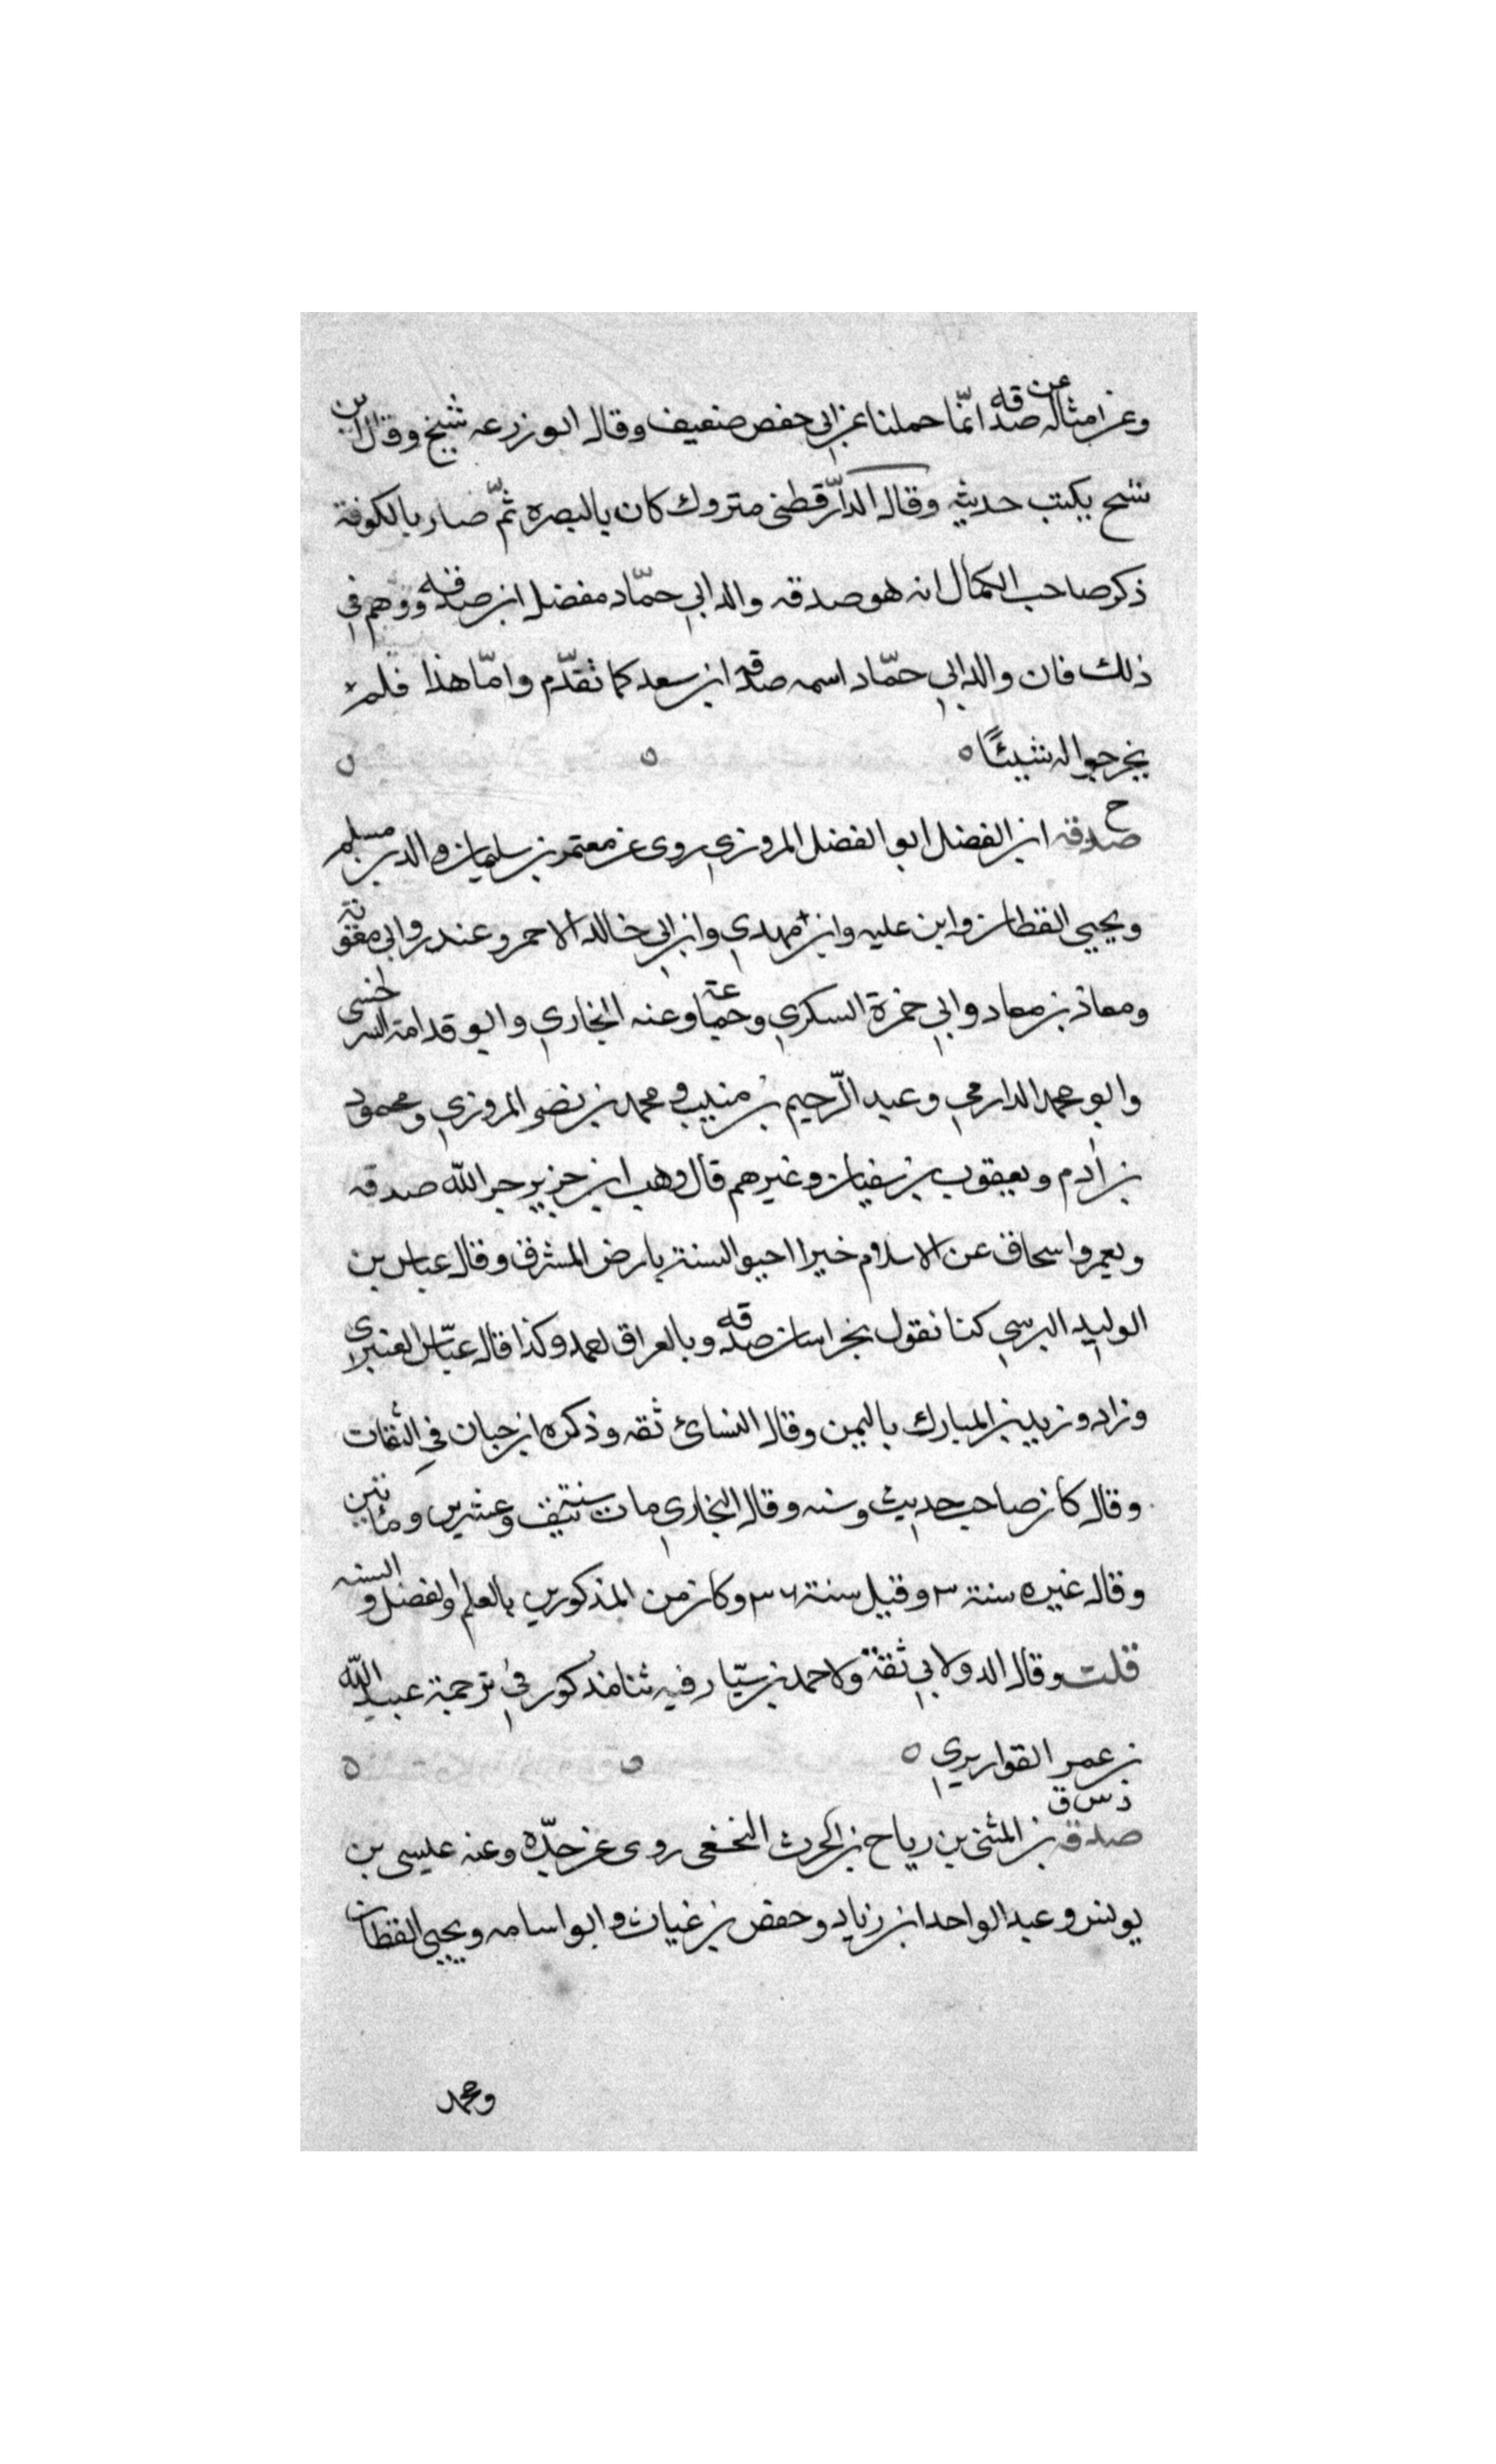 وعن امثاله عن صدقه انّما حملنا عن ابي حفص ضعيف وقال ابو زرعه شيخ وقال ابن
شيخ يكتب حديثه وقال الدّارقطنى متروك كان بالبصره ثمّ صار بالكوفة
ذكر صاحب الكمال انه هو صدقه والد ابي حمّاد مفضل ابن صدقه ووهم في
ذلك فان والد ابي حمّاد اسمه صدقه ابن سعد كما تقدّم وامّا هذا فلم
يخرجوا له شيئًا ه
خ
صدقه ابن الفضل ابو الفضل المروزي روى عن معتمر بن سليمان والد بن مسلم
ويحيى القطان وابن عليه وابن مهدي وابن ابي خالد الاحمر وغندر وابي معوية
ومعاذ بن معاد وابي حمزة السكري وجماعة وعنه البخاري وابو قدامة السرخسى
وابو محمد الدارمي وعبد الرّحيم بن منيب ومحمد بن نصر المروزي ومحمود
بن ادم ويعقوب بن سفيان وغيرهم قال وهب ابن جرير جزى اللّه صدقه
ويعمر واسحاق عن الاسلام خيرا احيوا السنة بارض المشرق وقال عباس بن
الوليد البرسي كنا نقول بخراسان صدقه وبالعراق احمد وكذا قاله عبّاس العنبري
وزاد وزيد بن المبارك باليمن وقال النسائ ثقه وذكره ابن حبان في الثقات
وقال كان صاحب حديث وسنه وقال البخاري مات سنة نيف وعشرين ومائتين
وقال غيره سنة ٣ وقيل سنة ٢٦ وكان من المذكورين بالعلم والفضل والسنه
قلت وقال الدولابي ثقة ولاحمد بن سيّار فيه ثنا مذكور في ترجمة عبيد اللّه
بن عمر القواريري ه
د س ق
صدقه بن المثنى بن رياح بن الحرث النخعى روى عن جدّه وعنه عليسى بن
يونس وعبد الواحد ابن زياد وحفص بن غياث وابو اسامه ويحيى القطان
ومحمد